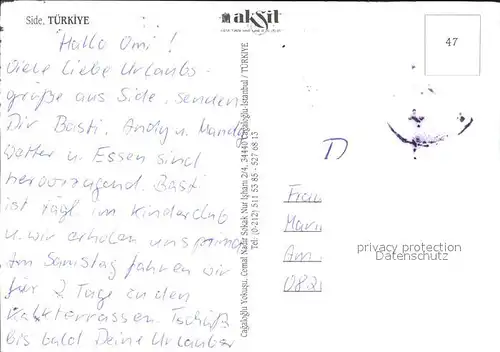 Side, TÜRKİYE
akşit
47
Hallo Omi!
Viele liebe Urlaubs-
grüße aus Side, senden
Dir Basti, Andy u. Mandy
Wetter u. Essen sind
hervorragend. Basti
ist tägl. im Kinderclub
u. wir erholen uns prima
Am Samstag fahren wir
für 2 Tage zu den
Kalkterrassen. Tschüß
bis bald Deine Urlauber
Cağaloğlu Yokuşu, Cemal Nadir Sokak Nur İşhanı 2/4, 34440 Cağaloğlu-İstanbul / TÜRKİYE
Tel: (0-212) 511 53 85 - 527 68 13
D
Frau
Am
privacy protection
Datenschutz